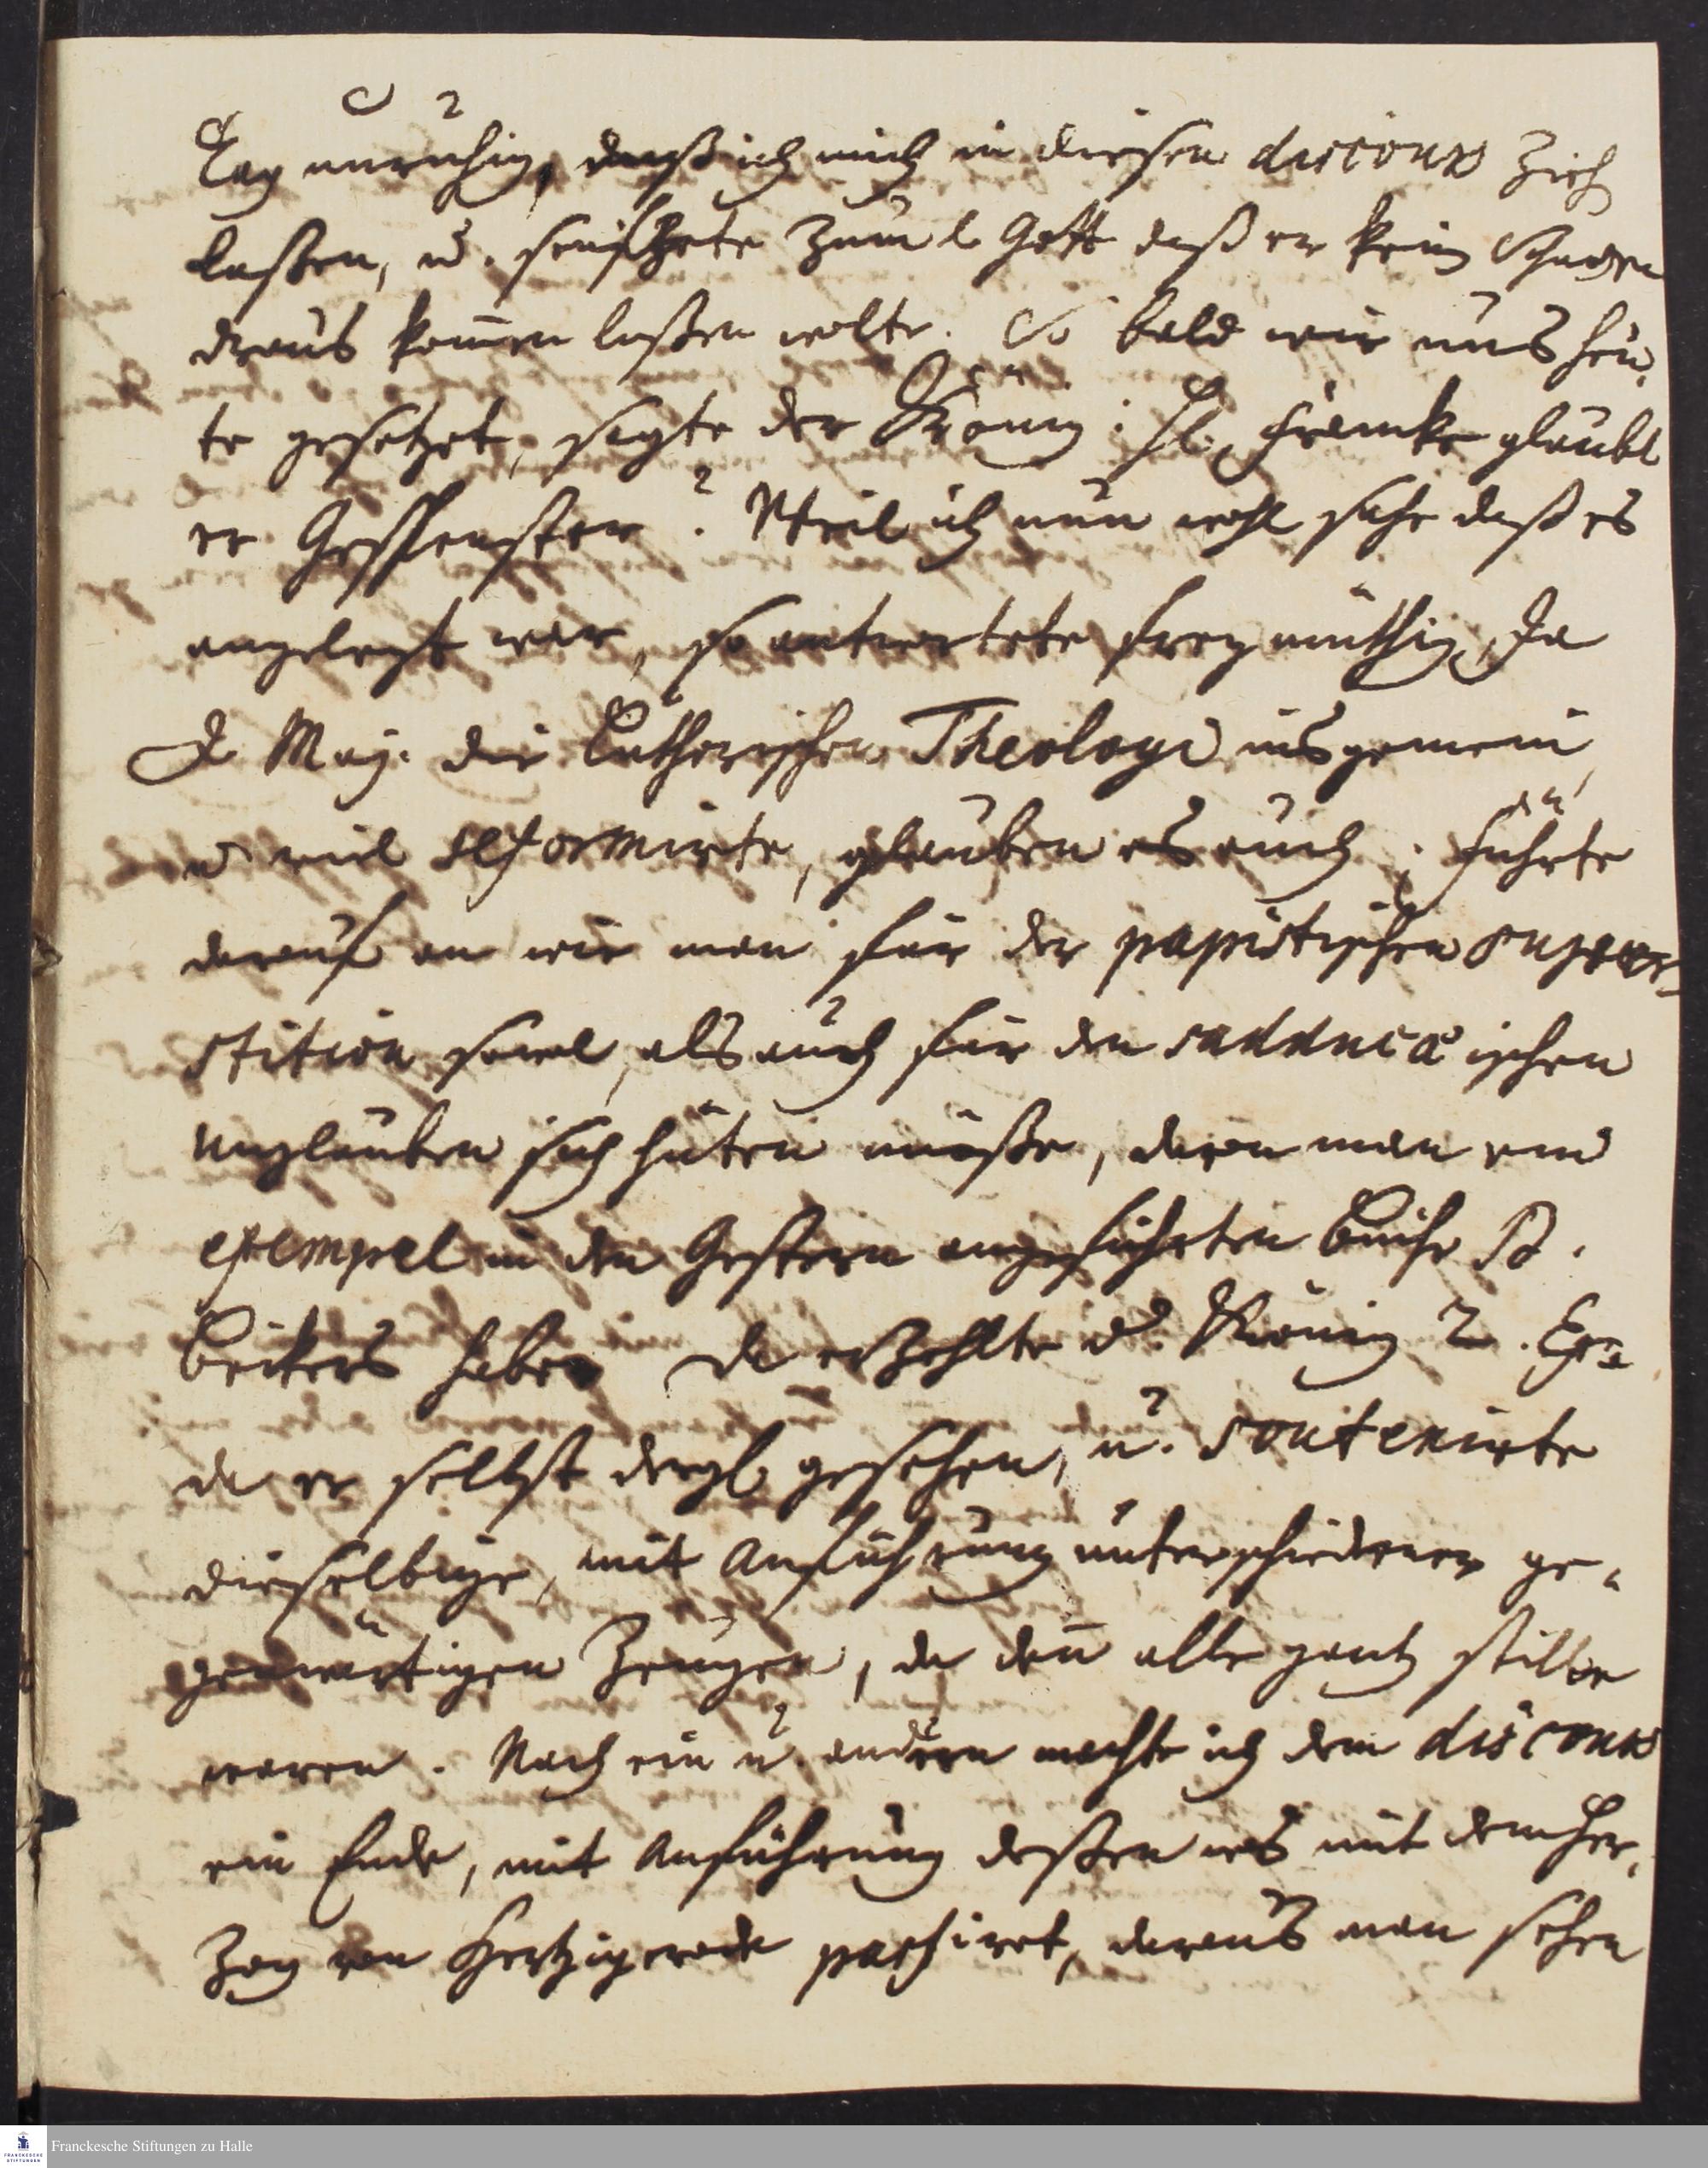 Tag unruhig, daß ich mich in diesen discours zieh
laßen, u. seuffzete zum l. Gott daß er kein Schaden
draus kommen laßen wolte. So bald wir uns heu-
te gesetzet, sagte der König: H. Francke glaubt
er Gespenster? Weil ich nun wohl sahe daß es
angelegt war, so antwortete freymüthig, Ja
E Maj. die Lutherischen Theologi insgemein
u viel reformirte, glauben es auch; führte
darauf an wie man für der papistischen super-
stition sowol, als auch für den sadducäischen
Unglauben sich hüten müße, davon man ein
exempel in den Gestern angeführten Buche B.
Beckers habe. Da erzehlte d. König 2. Ex=
da er selbst dergl. gesehen, u. soutenirte
dieselbige, mit Anführung unterschiedener ge-
genwärtigen Zeugen, da denn alle gantz stille
waren. Nach ein u. andern machte ich dem discours
ein Ende, mit Anführung deßen was mit dem Her-
zog von Hertzigerode passiret, daraus man sehen
Franckesche Stiftungen zu Halle